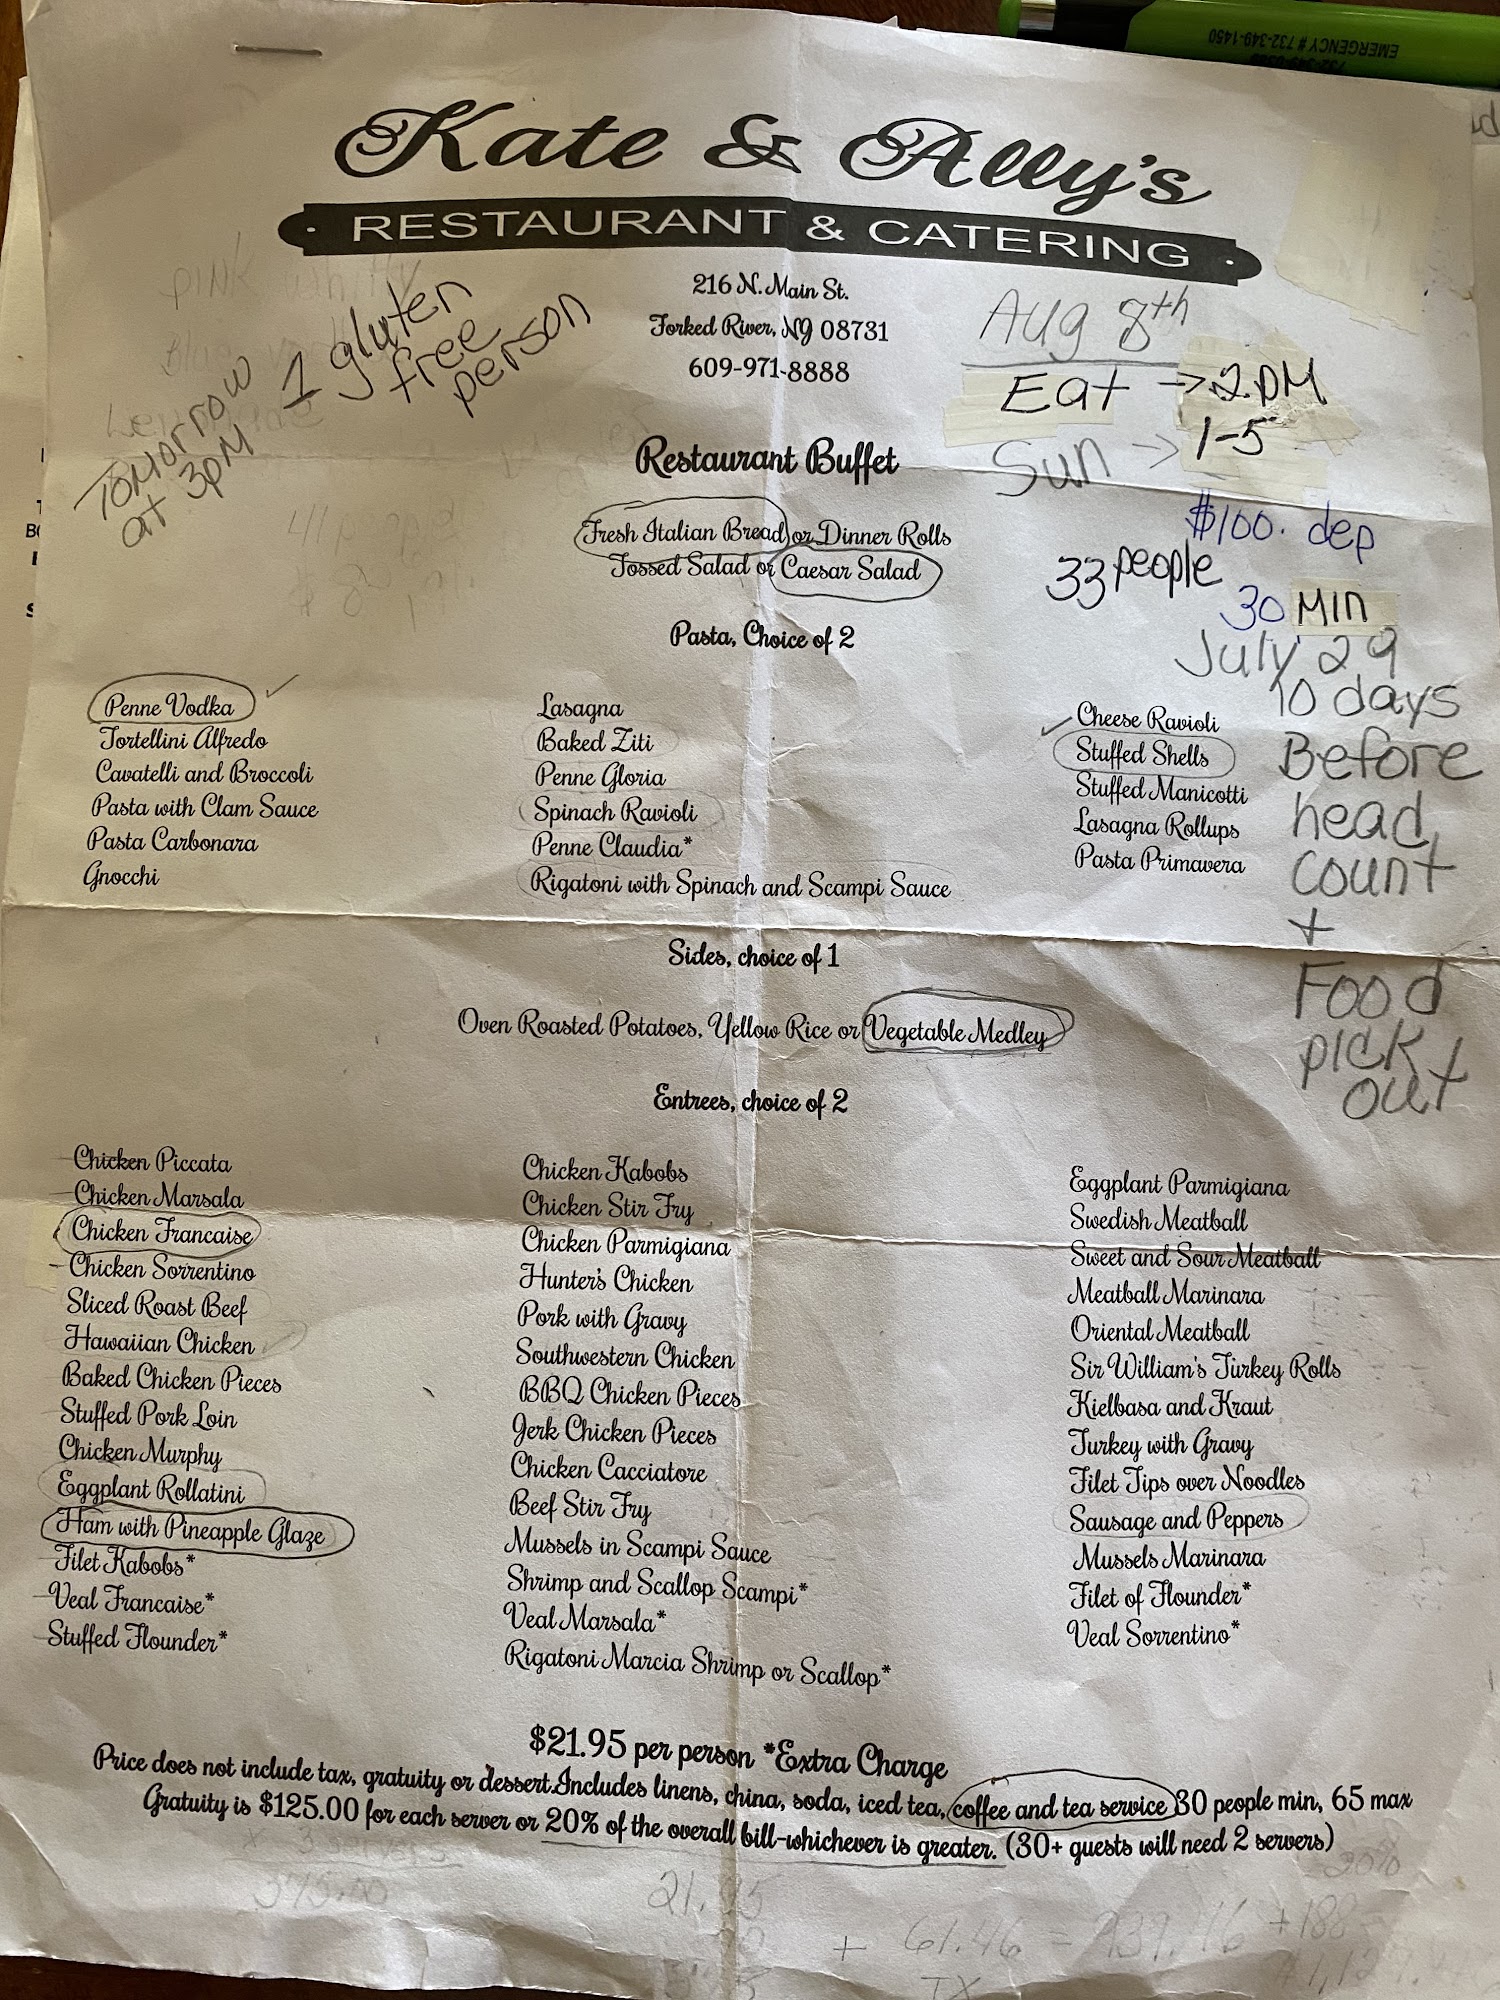 732-349-0323
EMERGENCY # 732-349-1450
Kate & Ally's
· RESTAURANT & CATERING ·
216 N. Main St.
Forked River, NJ 08731
609-971-8888
PINK
Tomorrow
at 3pm
1 gluten
free
person
Aug 8th
Eat → 2 PM
Sun → 1-5
$100. dep
33 people
30 MIN
July 29
10 days
Before
head
count
+
Food
pick
out
Restaurant Buffet
Fresh Italian Bread or Dinner Rolls
Tossed Salad or Caesar Salad
Pasta, Choice of 2
Penne Vodka
Tortellini Alfredo
Cavatelli and Broccoli
Pasta with Clam Sauce
Pasta Carbonara
Gnocchi
Lasagna
Baked Ziti
Penne Gloria
Spinach Ravioli
Penne Claudia*
Rigatoni with Spinach and Scampi Sauce
Cheese Ravioli
Stuffed Shells
Stuffed Manicotti
Lasagna Rollups
Pasta Primavera
Sides, choice of 1
Oven Roasted Potatoes, Yellow Rice or Vegetable Medley
Entrees, choice of 2
Chicken Piccata
Chicken Marsala
Chicken Francaise
Chicken Sorrentino
Sliced Roast Beef
Hawaiian Chicken
Baked Chicken Pieces
Stuffed Pork Loin
Chicken Murphy
Eggplant Rollatini
Ham with Pineapple Glaze
Filet Kabobs*
Veal Francaise*
Stuffed Flounder*
Chicken Kabobs
Chicken Stir Fry
Chicken Parmigiana
Hunter's Chicken
Pork with Gravy
Southwestern Chicken
BBQ Chicken Pieces
Jerk Chicken Pieces
Chicken Cacciatore
Beef Stir Fry
Mussels in Scampi Sauce
Shrimp and Scallop Scampi*
Veal Marsala*
Rigatoni Marcia Shrimp or Scallop*
Eggplant Parmigiana
Swedish Meatball
Sweet and Sour Meatball
Meatball Marinara
Oriental Meatball
Sir William's Turkey Rolls
Kielbasa and Kraut
Turkey with Gravy
Filet Tips over Noodles
Sausage and Peppers
Mussels Marinara
Filet of Flounder*
Veal Sorrentino*
$21.95 per person *Extra Charge
Price does not include tax, gratuity or dessert.Includes linens, china, soda, iced tea, coffee and tea service 30 people min, 65 max
Gratuity is $125.00 for each server or 20% of the overall bill-whichever is greater. (30+ guests will need 2 servers)
375.00
21.95
20%
+ 61.46 = 939.46 + 188
TX